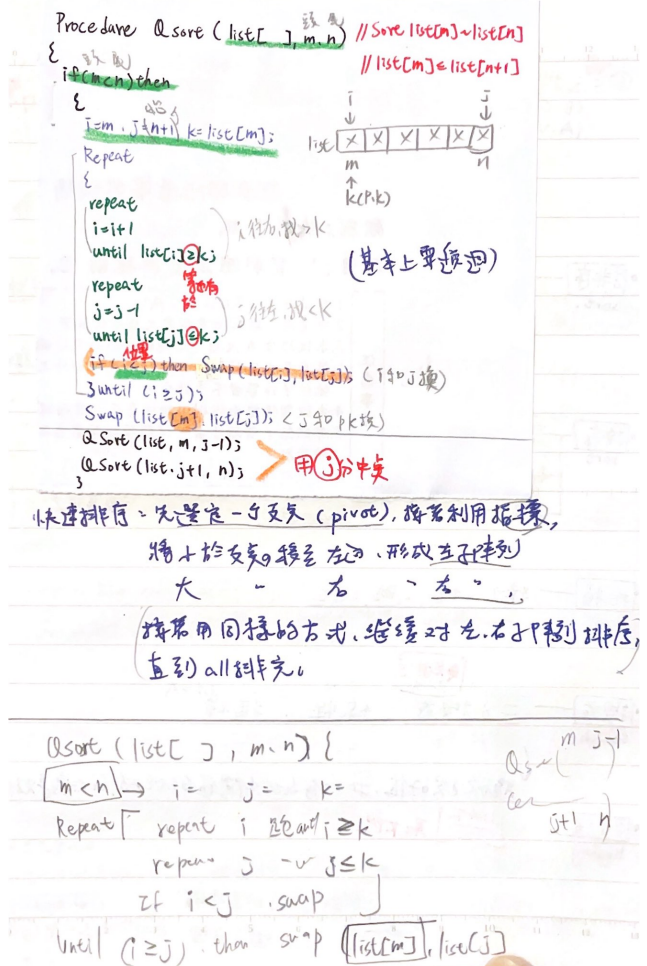 頭 尾
Procedure Qsort (list[ ], m, n) //Sort list[m]~list[n]
{ //list[m]≤list[n+1]
頭 尾
if(m<n)then
{
i=m, j=n+1, k=list[m];
i j
list X X X X X X
m n
k(P.k)
Repeat
{
repeat
i=i+1 i往右,找>k
until list[i]≥k;
(基本上要遞迴)
repeat
j=j-1 j往左,找<k
until list[j]≤k;
位置
if (i<j) then Swap(list[i], list[j]); (i和j換)
}until (i≥j);
Swap (list[m], list[j]); (j和pk換)
QSort (list, m, j-1);
QSort (list, j+1, n); 用j分中央
}
快速排序:先選定一個支點(pivot),接著利用指標,
將小於支點的移至左邊,形成左子陣列
大 〃 右 〃 右 〃,
接著用同樣的方式,繼續對左.右子陣列排序,
直到all排完。
Qsort (list[ ], m, n) {
m j-1
m<n → i= j= k=
j+1 n
Repeat repeat i until i≥k
j≤k
If i<j swap
Until (i≥j) then swap (list[m], list[j]